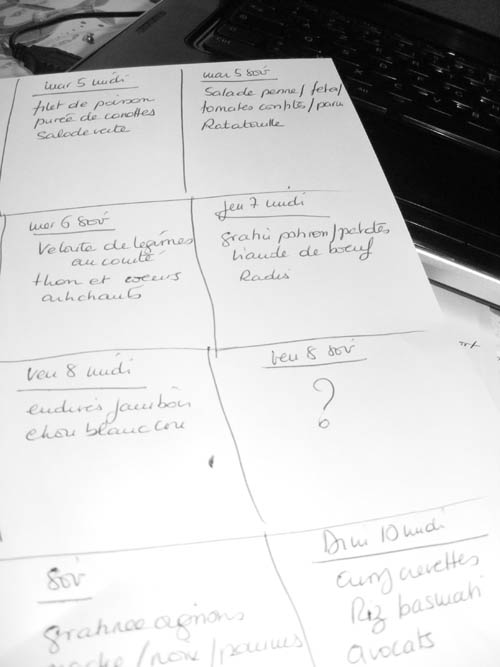 mar 5 midi
filet de poisson
purée de carottes
salade verte
mar 5 soir
Salade penne / feta /
tomates confites /
Ratatouille
mer 6 soir
Velouté de légumes
au comté
thon et coeurs
artichauts
jeu 7 midi
gratin potiron / patates
Viande de boeuf
Radis
ven 8 midi
endives jambon
chou blanc cru
ven 8 soir
?
soir
gratinée oignons
/ noix / pommes
Dim 10 midi
curry crevettes
Riz basmati
avocats